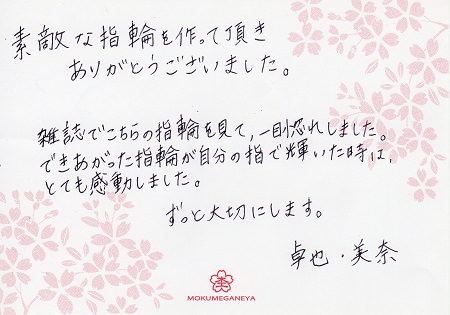 素敵な指輪を作って頂き
ありがとうございました。
雑誌でこちらの指輪を見て、一目惚れしました。
できあがった指輪が自分の指で輝いた時は、
とても感動しました。
ずっと大切にします。
卓也・美奈
MOKUMEGANEYA